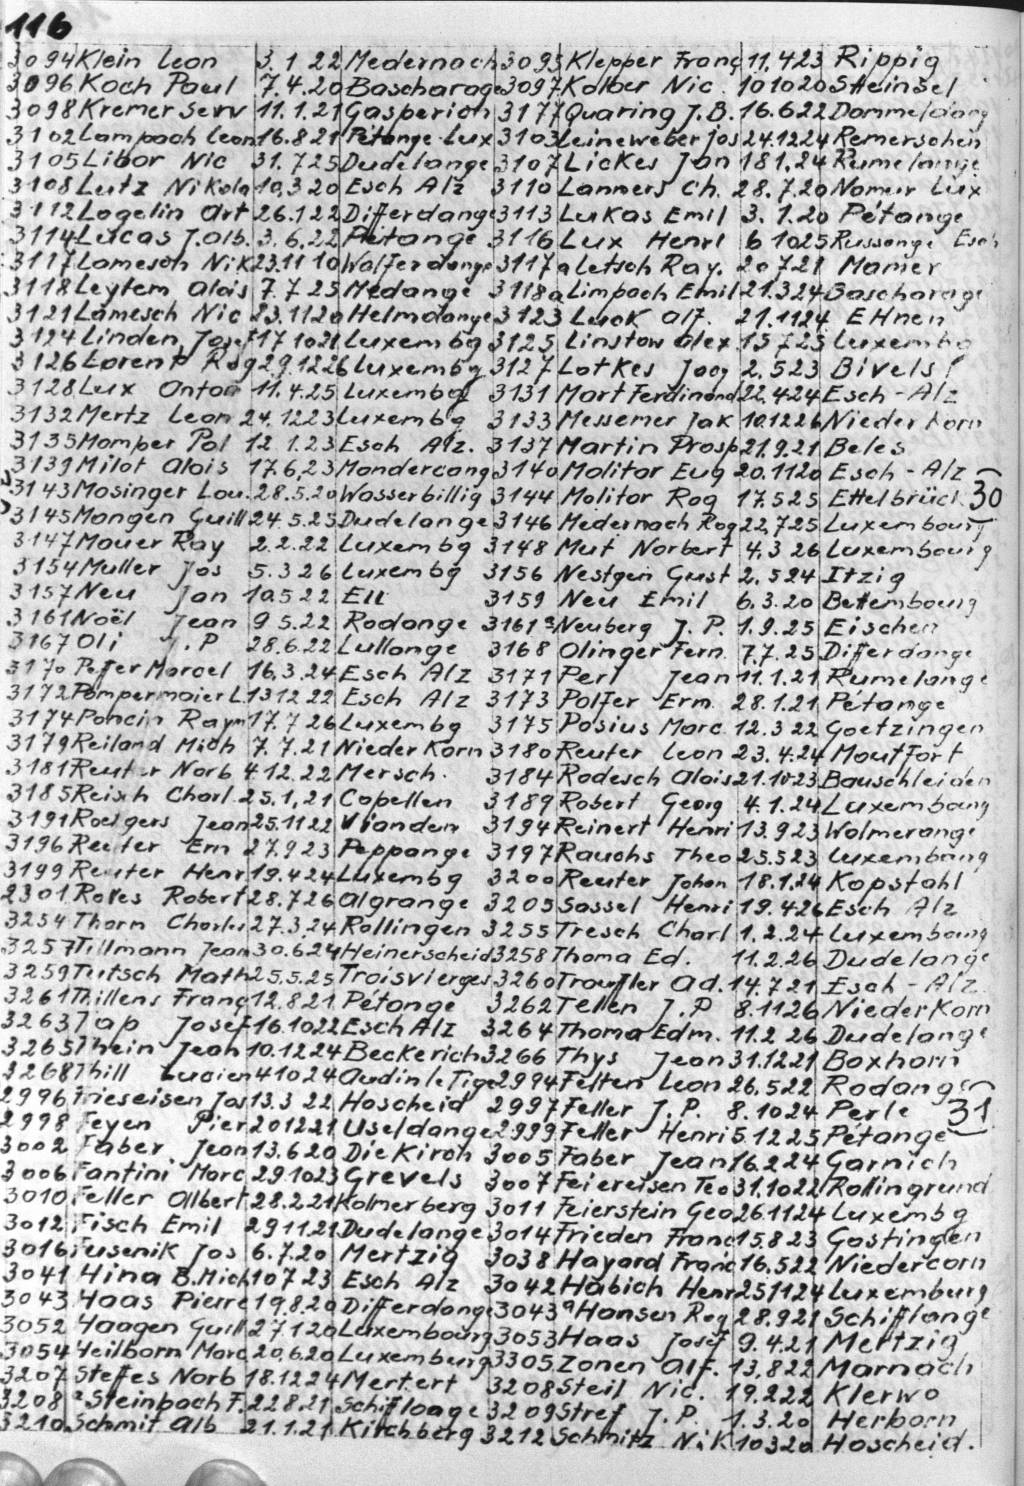 116
3094 Klein Leon 3.1 22 Medernach 3095 Klepper Franç 11.423 Rippig
3096 Koch Paul 7.4.20 Bascharage 3097 Kolber Nic. 101020 Steinsel
3098 Kremer Serv 11.1.21 Gasperich 3177 Quaring J.B. 16.622 Dommeldang
3102 Lampach Leon 16.8.21 Pétange Lux 3103 Leineweber Jos 24.1224 Remerschen
3105 Libar Nic 31.725 Dudelange 3107 Lickes Jan 181.24 Rumelange
3108 Lutz Nikola 10.3 20 Esch Alz 3110 Lanners Ch. 28.7.20 Namur Lux
3112 Logelin Art 26.122 Differdange 3113 Lukas Emil 3.1.20 Pétange
3114 Lucas J.alb. 3.6.22 Pétange 3116 Lux Henri 6 1025 Russange Esch
3117 Lamesch Nik 23.11 10 Walferdange 3117a Letsch Ray. 20721 Mamer
3118 Leytem Alois 7.7 25 Médange 3118a Limpach Emil 21.324 Bascharage
3121 Lamesch Nic 23.1120 Helmdange 3123 Luck Alf. 21.1124 EHnen
3124 Linden Josef 17 1021 Luxembg 3125 Linstow Alex 15725 Luxembg
3126 Lorent Rog 29.1226 Luxembg 3127 Lotkes Joog 2.523 Bivels
3128 Lux Anton 11.4.25 Luxembg 3131 Mart Ferdinand 22.424 Esch-Alz
3132 Mertz Leon 24.1223 Luxembg 3133 Messemer Jak 10.1226 Niederkorn
3135 Momper Pol 12 1.23 Esch Alz. 3137 Martin Prosp 21.9.21 Beles
3139 Milot Alois 17.6.23 Mondercang 3140 Molitor Eug 20.1120 Esch-Alz
3143 Mosinger Lou. 28.5.20 Wasserbillig 3144 Molitor Rog 17.525 Ettelbrück 30
3145 Mangen Guill 24.5.25 Dudelange 3146 Medernach Rog 22.725 Luxembourg
3147 Mauer Ray 2.2.22 Luxembg 3148 Mut Norbert 4.3 26 Luxembourg
3154 Muller Jos 5.3 26 Luxembg 3156 Nestgen Gust 2.524 Itzig
3157 Neu Jan 10.5 22 Ell 3159 Neu Emil 6.3.20 Bettembourg
3161 Noël Jean 9 5.22 Rodange 3161a Neuberg J.P. 1.9.25 Eischen
3167 Oli J.P 28.6.22 Lullange 3168 Olinger Fern. 7.7.25 Differdange
3170 Peffer Marcel 16.3.24 Esch Alz 3171 Perl Jean 11.1.21 Rumelange
3172 Pompermaier L 1312.22 Esch Alz 3173 Polfer Erm. 28.1.21 Pétange
3174 Poncin Raym 17.7 26 Luxembg 3175 Posius Marc 12.3 22 Goetzingen
3179 Reiland Mich 7.7.21 NiederKorn 3180 Reuter Leon 23.4.24 Moutfort
3181 Reuter Norb 4.12.22 Mersch. 3184 Rodesch Alois 21.1023 Bauschleiden
3185 Reisch Charl. 25.1.21 Capellen 3189 Robert Georg 4.1.24 Luxembourg
3191 Roesgers Jean 25.1122 Vianden 3194 Reinert Henri 13.9.23 Wolmerange
3196 Reuter Ern 27.923 Peppange 3197 Rauchs Theo 25.523 Luxembourg
3199 Reuter Henr 19.424 Luxembg 3200 Reuter Johan 18.1.24 Kopstahl
2301 Roles Robert 28.726 Algrange 3205 Sassel Henri 19.426 Esch Alz
3254 Thorn Charles 27.3.24 Rollingen 3255 Tresch Charl 1.2.24 Luxembourg
3257 Tillmann Jean 30.624 Heinerscheid 3258 Thoma Ed. 11.2.26 Dudelange
3259 Teitsch Math 25.5.25 Troisvierges 3260 Trauffler Ad. 14.7.21 Esch-Alz
3261 Thillens Franç 12.8.21 Pétange 3262 Tellen J.P 8.1126 NiederKorn
3263 Tap Josef 16.1022 Esch Alz 3264 Thoma Edm. 11.2.26 Dudelange
3265 Thein Jean 10.1224 Beckerich 3266 Thys Jean 31.1221 Boxhorn
3268 Thill Lucien 41024 Audin le Tige 2994 Felten Leon 26.522 Rodange
2996 Frieseisen Jos 13.3 22 Hoscheid 2997 Feller J.P. 8.1024 Perle 31
2998 Feyen Pier 201221 Useldange 2999 Feller Henri 5.1225 Pétange
3002 Faber Jean 13.620 DieKirch 3005 Faber Jean 16.2.24 Garnich
3006 Fantini Marc 29.1023 Grevels 3007 Feiereisen Teo 31.1022 Rollingrund
3010 Feller Albert 28.2.21 Kolmerberg 3011 Feierstein Geo 26.1124 Luxembg
3012 Fisch Emil 29.11.21 Dudelange 3014 Frieden Franc 15.8 23 Gostingen
3016 Fusenik Jos 6.7.20 Mertzig 3038 Hayard Franc 16.522 Niedercorn
3041 Hina B.Mich 107 23 Esch Alz 3042 Habich Henr 251124 Luxemburg
3043 Haas Pierre 19.8.20 Differdange 3043a Hansen Rog 28.921 Schifflange
3052 Haagen Guill 27.120 Luxembourg 3053 Haas Josef 9.4.21 Mertzig
3054 Heilborn Marc 20.6.20 Luxemburg 3305 Zonen Alf. 13.822 Marnach
3207 Steffes Norb 18.1224 Mertert 3208 Steil Nic. 19.222 Klerwo
3208a Steinbach F. 228.21 Schifflange 3209 Stref J.P. 1.3.20 Herborn
3210 Schmit Alb 21.1.21 Kirchberg 3212 Schmitz Nik 10320 Hoscheid.